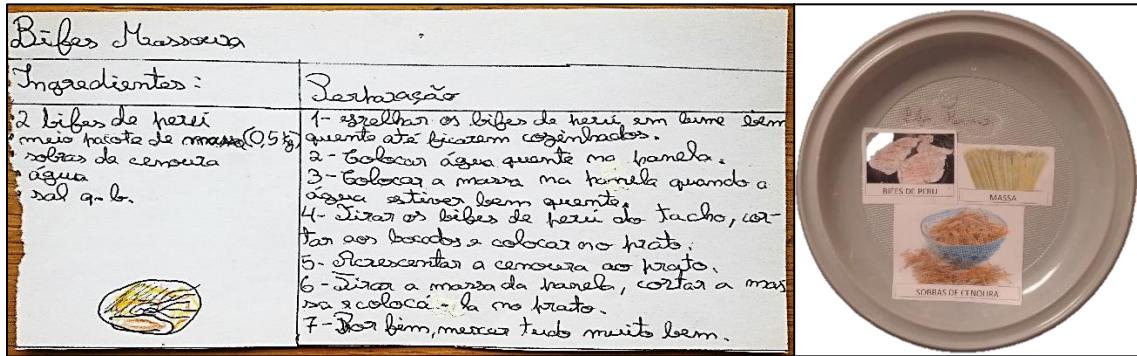 Bifes Massoura
Ingredientes:
2 bifes de peru
meio pacote de massa (0,5 kg)
sobras de cenoura
água
sal q.b.
Perparação
1- grelhar os bifes de peru, em lume bem
quente até ficarem cozinhados.
2- Colocar água quente na panela.
3- Colocar a massa na panela quando a
água estiver bem quente.
4- Tirar os bifes de peru do tacho, cor-
tar aos bocados e colocar no prato.
5- Acrescentar a cenoura ao prato.
6- Tirar a massa da panela, cortar a mas
sa e colocá-la no prato.
7- Por fim, mexer tudo muito bem.
BIFES DE PERU
MASSA
SOBRAS DE CENOURA